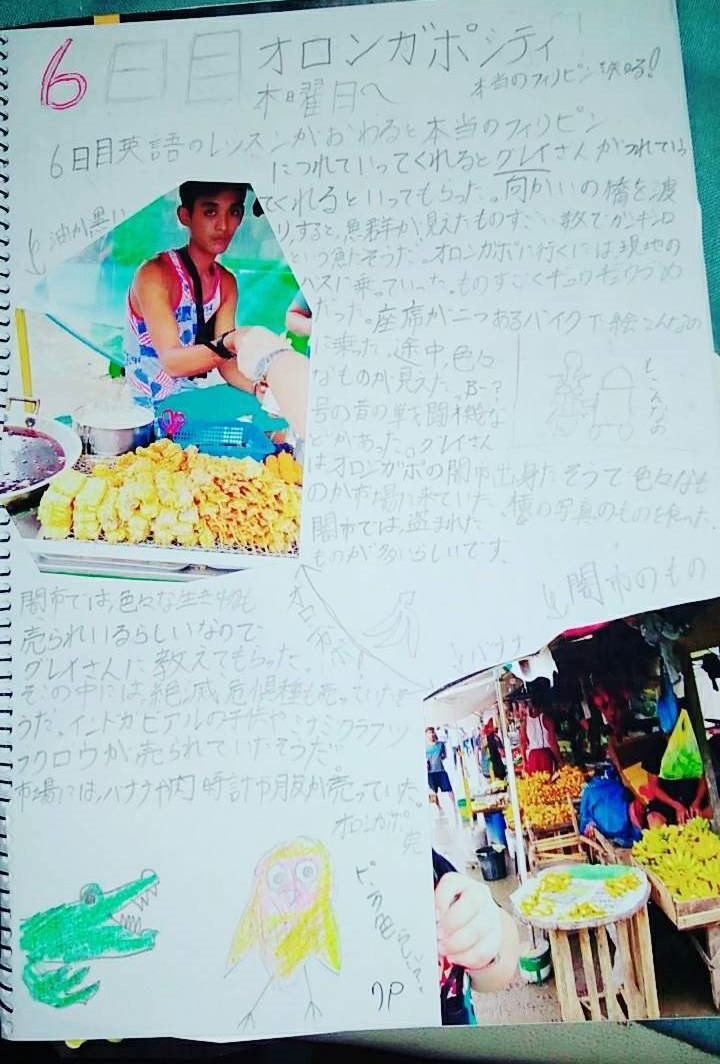 6日目 オロンガポシティ
木曜日へ
本当のフィリピン
6日目英語のレッスンがおわると本当のフィリピン
につれていってくれるとグレイさんがつれてい
てくれるといってもらった。向かいの橋を渡
り、すると、魚群が見えたものすごい数で
という魚だそうだ。オロンガポに行くには現地の
バスに乗っていった。ものすごくギュウギュウづめ
だった。座席が二つあるバイクで絵こんなの
に乗った。途中、色々
なものが見えた。B-?
号の昔の戦闘機な
どがあった。グレイさん
はオロンガポの闇市出身だそうで色々なも
のが市場に来ていた。横の写真のものを食った。
闇市では、盗まれた
ものが多いらしいです。
油が黒い
こんなの
闇市のもの
バナナ
闇市では、色々な生き物も
売られいるらしいなので
グレイさんに教えてもらった。
その中には絶滅危惧種も売っていたそ
うだ。インドガビアルの
フクロウが売られていたそうだ。
市場には、バナナや肉時計や服が売っていた。
オロンガポ
完
7P